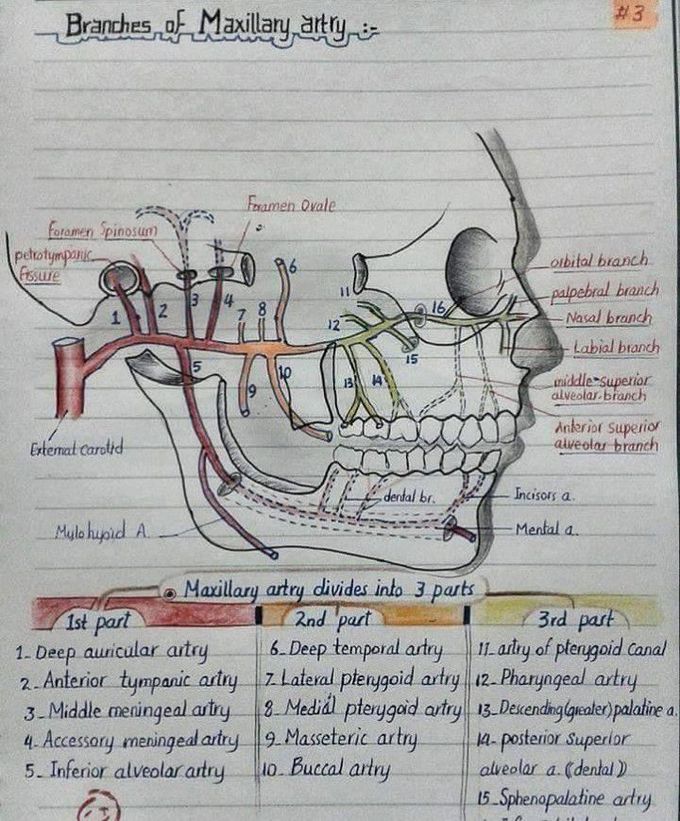 Branches of Maxillary artry :-
#3
Foramen Ovale
Foramen Spinosum
petrotympanic
fissure
orbital branch
palpebral branch
Nasal branch
Labial branch
middle-superior
alveolar branch
Anterior superior
alveolar branch
1
2
3
4
5
6
7
8
9
10
11
12
13
14
15
16
External carotid
Mylohyoid A.
dental br.
Incisors a.
Mental a.
Maxillary artry divides into 3 parts
1st part
1- Deep auricular artry
2- Anterior tympanic artry
3- Middle meningeal artry
4- Accessory meningeal artry
5- Inferior alveolar artry
2nd part
6- Deep temporal artry
7- Lateral pterygoid artry
8- Medial pterygoid artry
9- Masseteric artry
10- Buccal artry
3rd part
11- artry of pterygoid canal
12- Pharyngeal artry
13- Descending(greater) palatine a.
14- posterior superior
alveolar a. ((dental))
15- Sphenopalatine artry